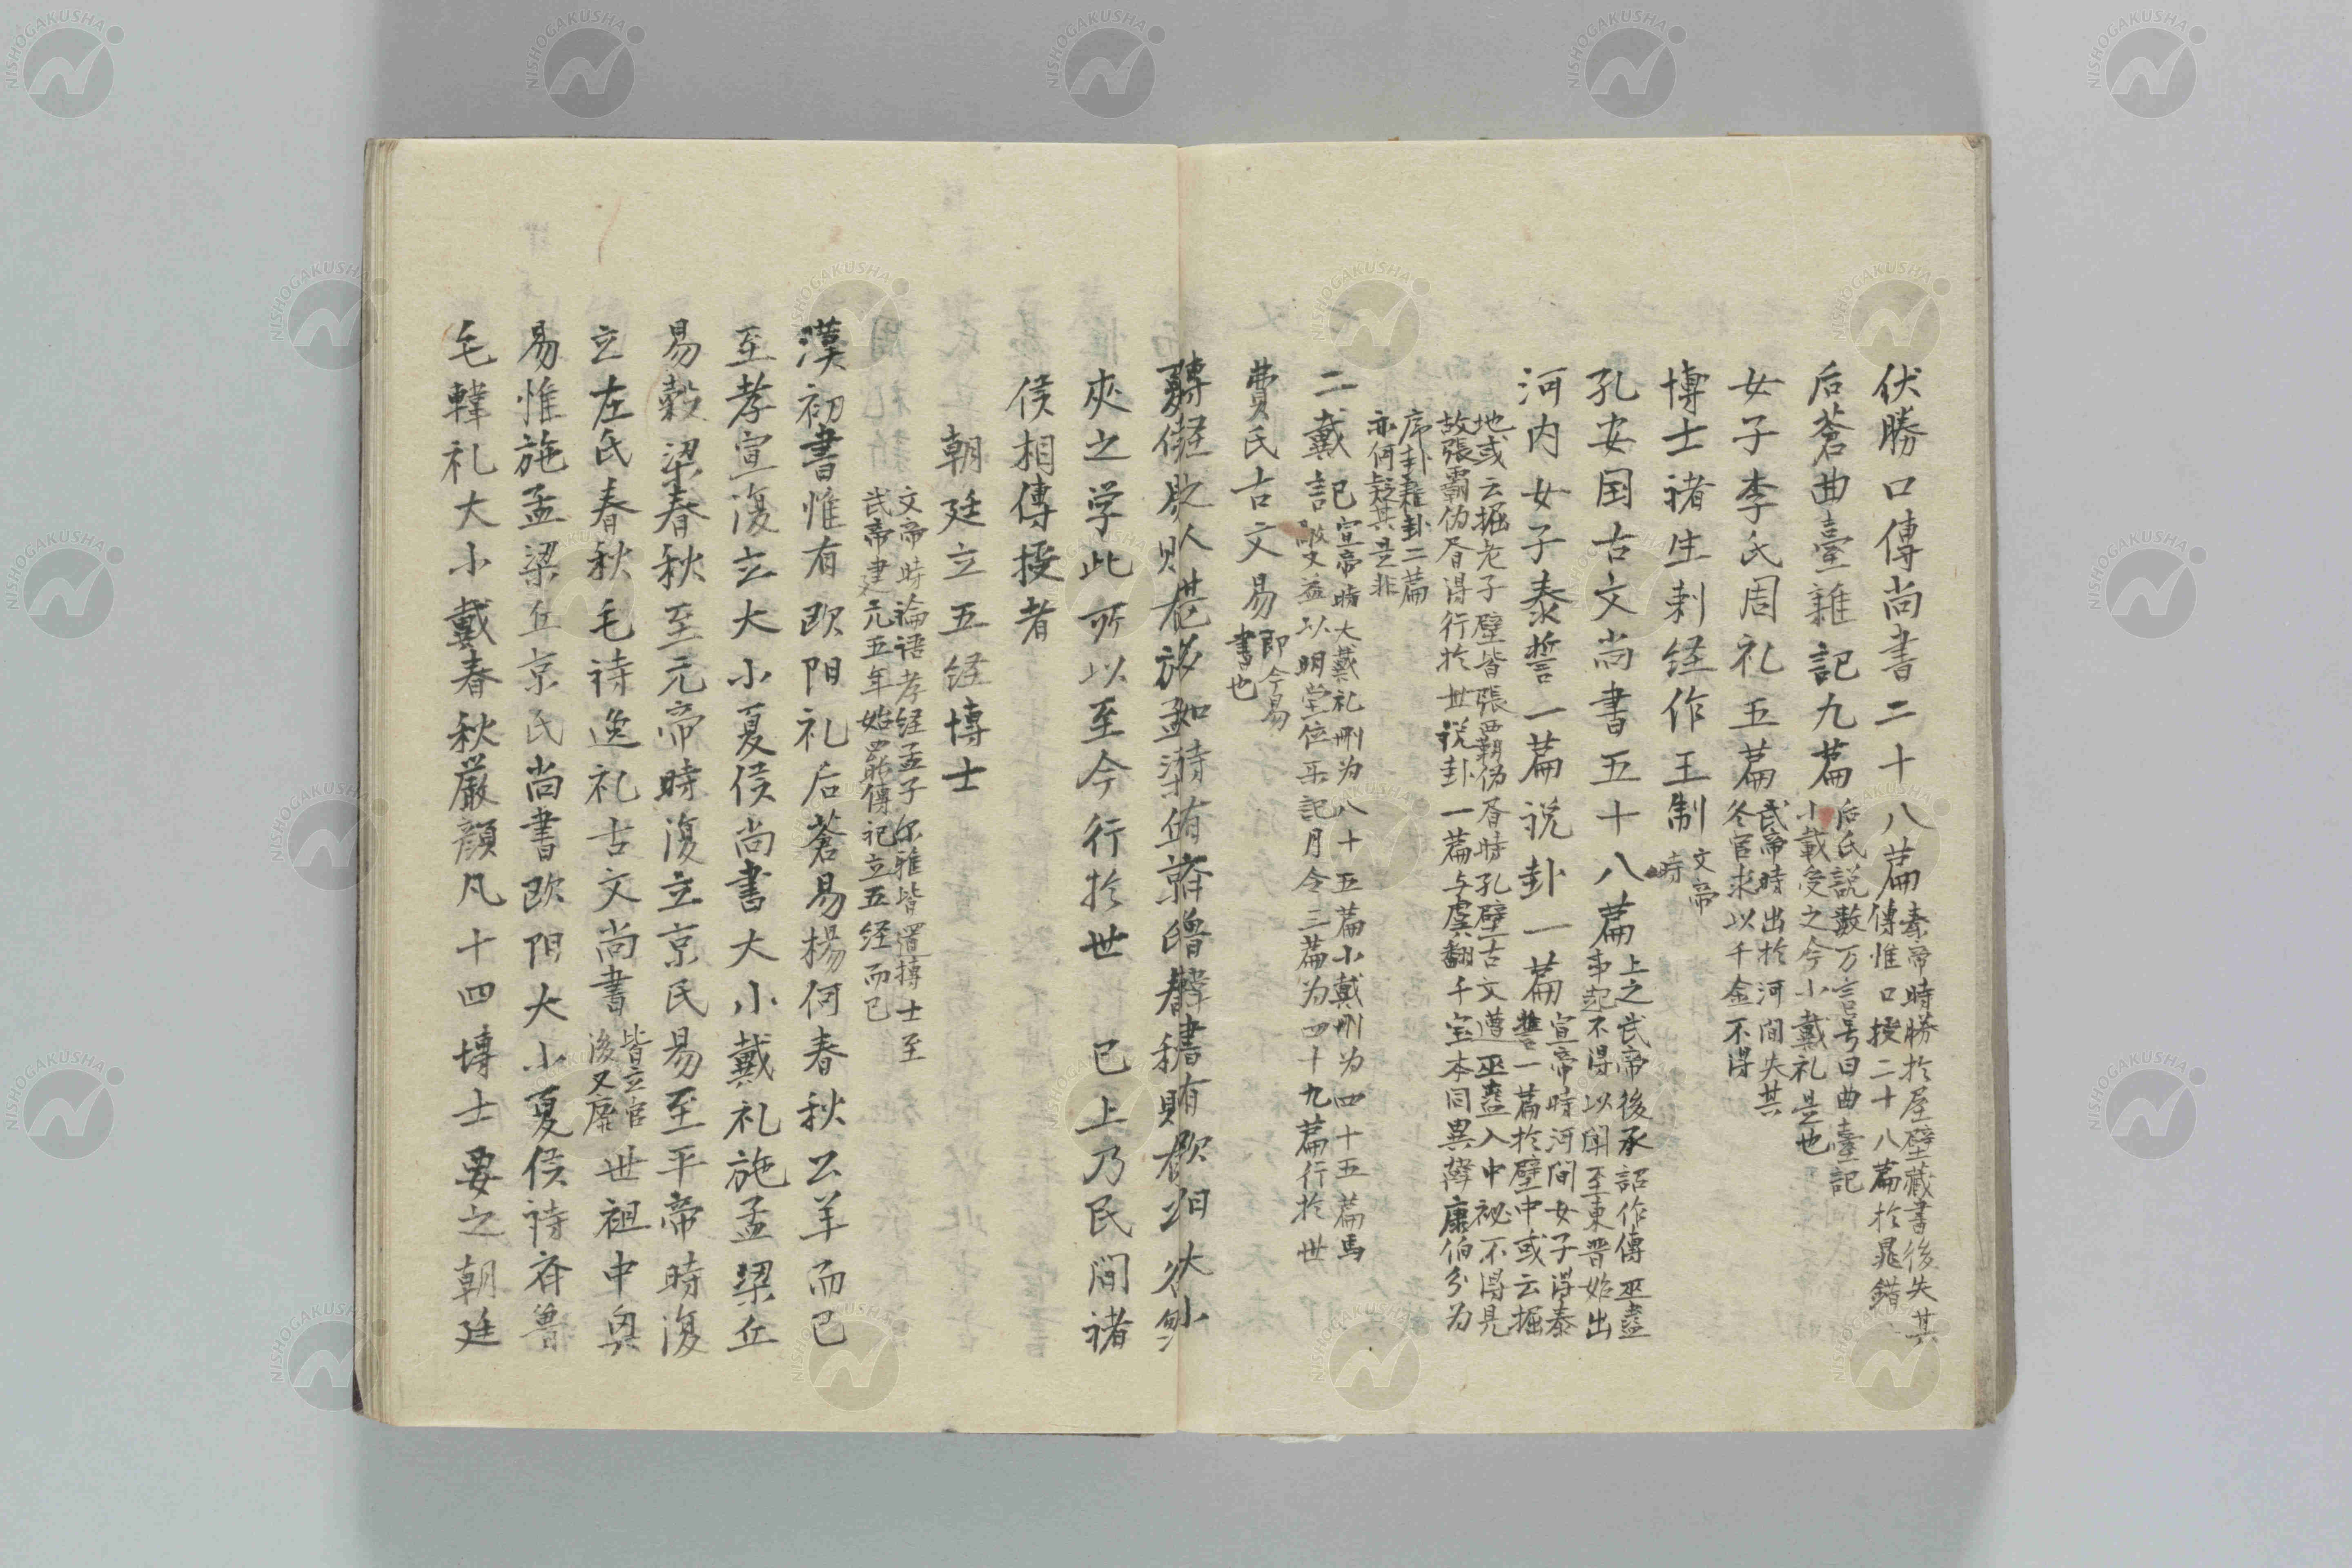 伏勝口傳尚書二十八篇
秦帝時勝於屋壁藏書後失其
傳惟口授二十八篇於晁錯
后蒼曲臺雜記九篇
后氏説數万言号曰曲臺記
小載受之今小戴礼是也
女子李氏周礼五篇
武帝時出於河間失其
冬官求以千金不得
博士诸生刺経作王制
文帝
時
孔安国古文尚書五十八篇
上之武帝後承詔作傳巫蠱
事起不得以聞至東晋始出
河内女子泰誓一篇説卦一篇
宣帝時河間女子得泰
誓一篇於壁中或云掘
地或云掘老子壁皆張霸伪晋時孔壁古文遭巫蠱入中秘不得見
故張霸伪者得行於世説卦一篇与虞翻千宝本同異韓康伯分为
序卦雜卦二篇
亦何疑其是非
二戴記
宣帝時大戴礼删为八十五篇小戴删为四十五篇馬
又益以明堂位乐記月令三篇为四十九篇行於世
費氏古文易
即今易
書也
夾之学此所以至今行於世 已上乃民間诸
侯相傳授者
朝廷立五経博士
文帝時論語孝経孟子尔雅皆置博士至
武帝建元五年始罷傳記立五経而已
漢初書惟有欧阳礼后蒼易楊何春秋公羊而已
至孝宣復立大小夏侯尚書大小戴礼施孟梁丘
易穀梁春秋至元帝時復立京氏易至平帝時復
立左氏春秋毛诗逸礼古文尚書
皆立官
後又廢
世祖中興
易惟施孟梁丘京氏尚書欧阳大小夏侯诗斉魯
毛韓礼大小戴春秋厳顔凡十四博士要之朝廷